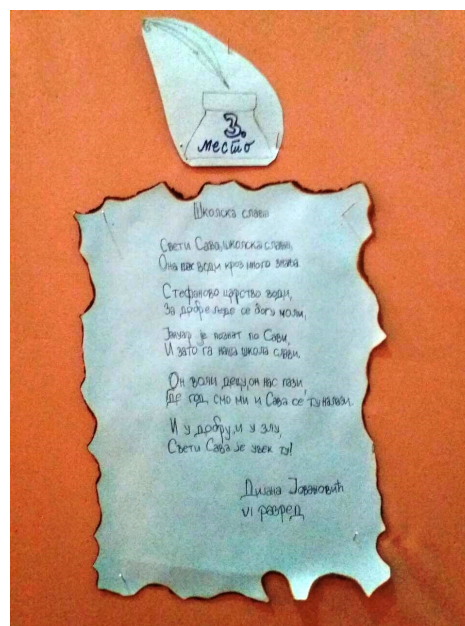 3.
место
Школска слава
Свети Сава, школска слава,
Она нас води кроз много знања.
Стефаново царство води,
За добре људе се богу моли,
Јануар је познат по Сави,
И зато га наша школа слави.
Он воли децу, он нас пази,
Где год смо ми и Сава се ту налази.
И у добру, и у злу,
Свети Сава је увек ту!
Дијана Јовановић
VI разред